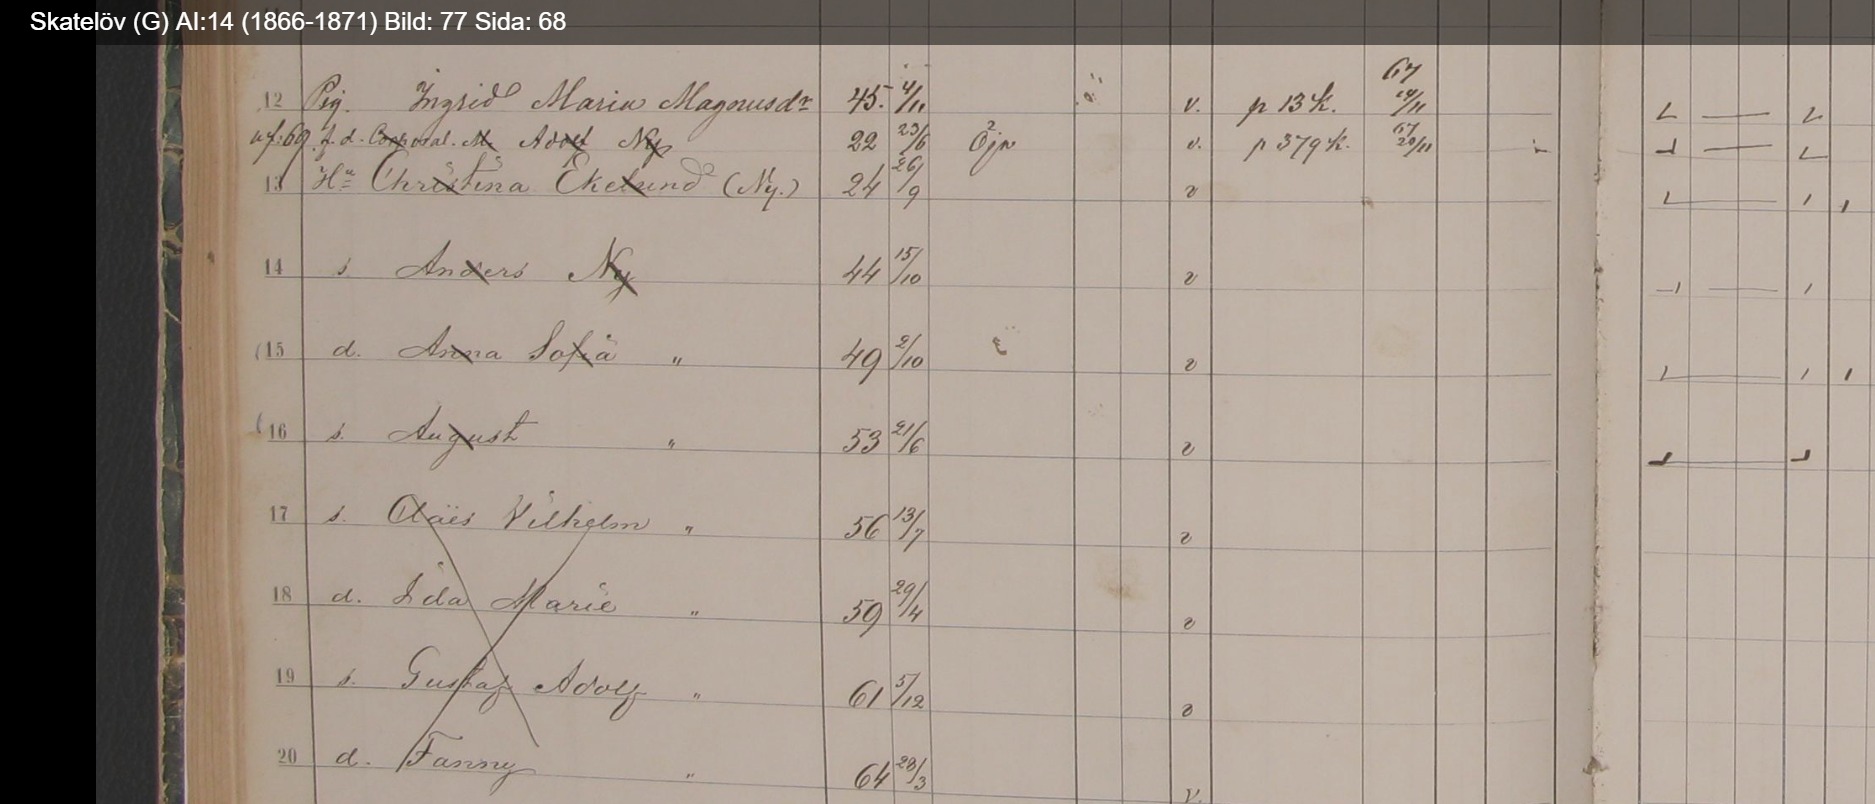 Skatelöv (G) AI:14 (1866-1871) Bild: 77 Sida: 68
12 Pig. Ingrid Maria Magnusdr 45. 4/11 v. p 13 k. 67 14/11
utf. 69. f. d. Corporal. M. Adolf Ny 22 23/6 Öja v. p 379 k. 67 20/11
13 Hu Christina Ekelund (Ny.) 24 26/9 v
14 s. Anders Ny 44 15/10 v
15 d. Anna Sofia " 49 2/10 v
16 s. August " 53 21/6 v
17 s. Claës Vilhelm " 56 13/7 v
18 d. Ida Marie " 59 29/4 v
19 s. Gustaf Adolf " 61 5/12 v
20 d. Fanny " 64 28/3 v.